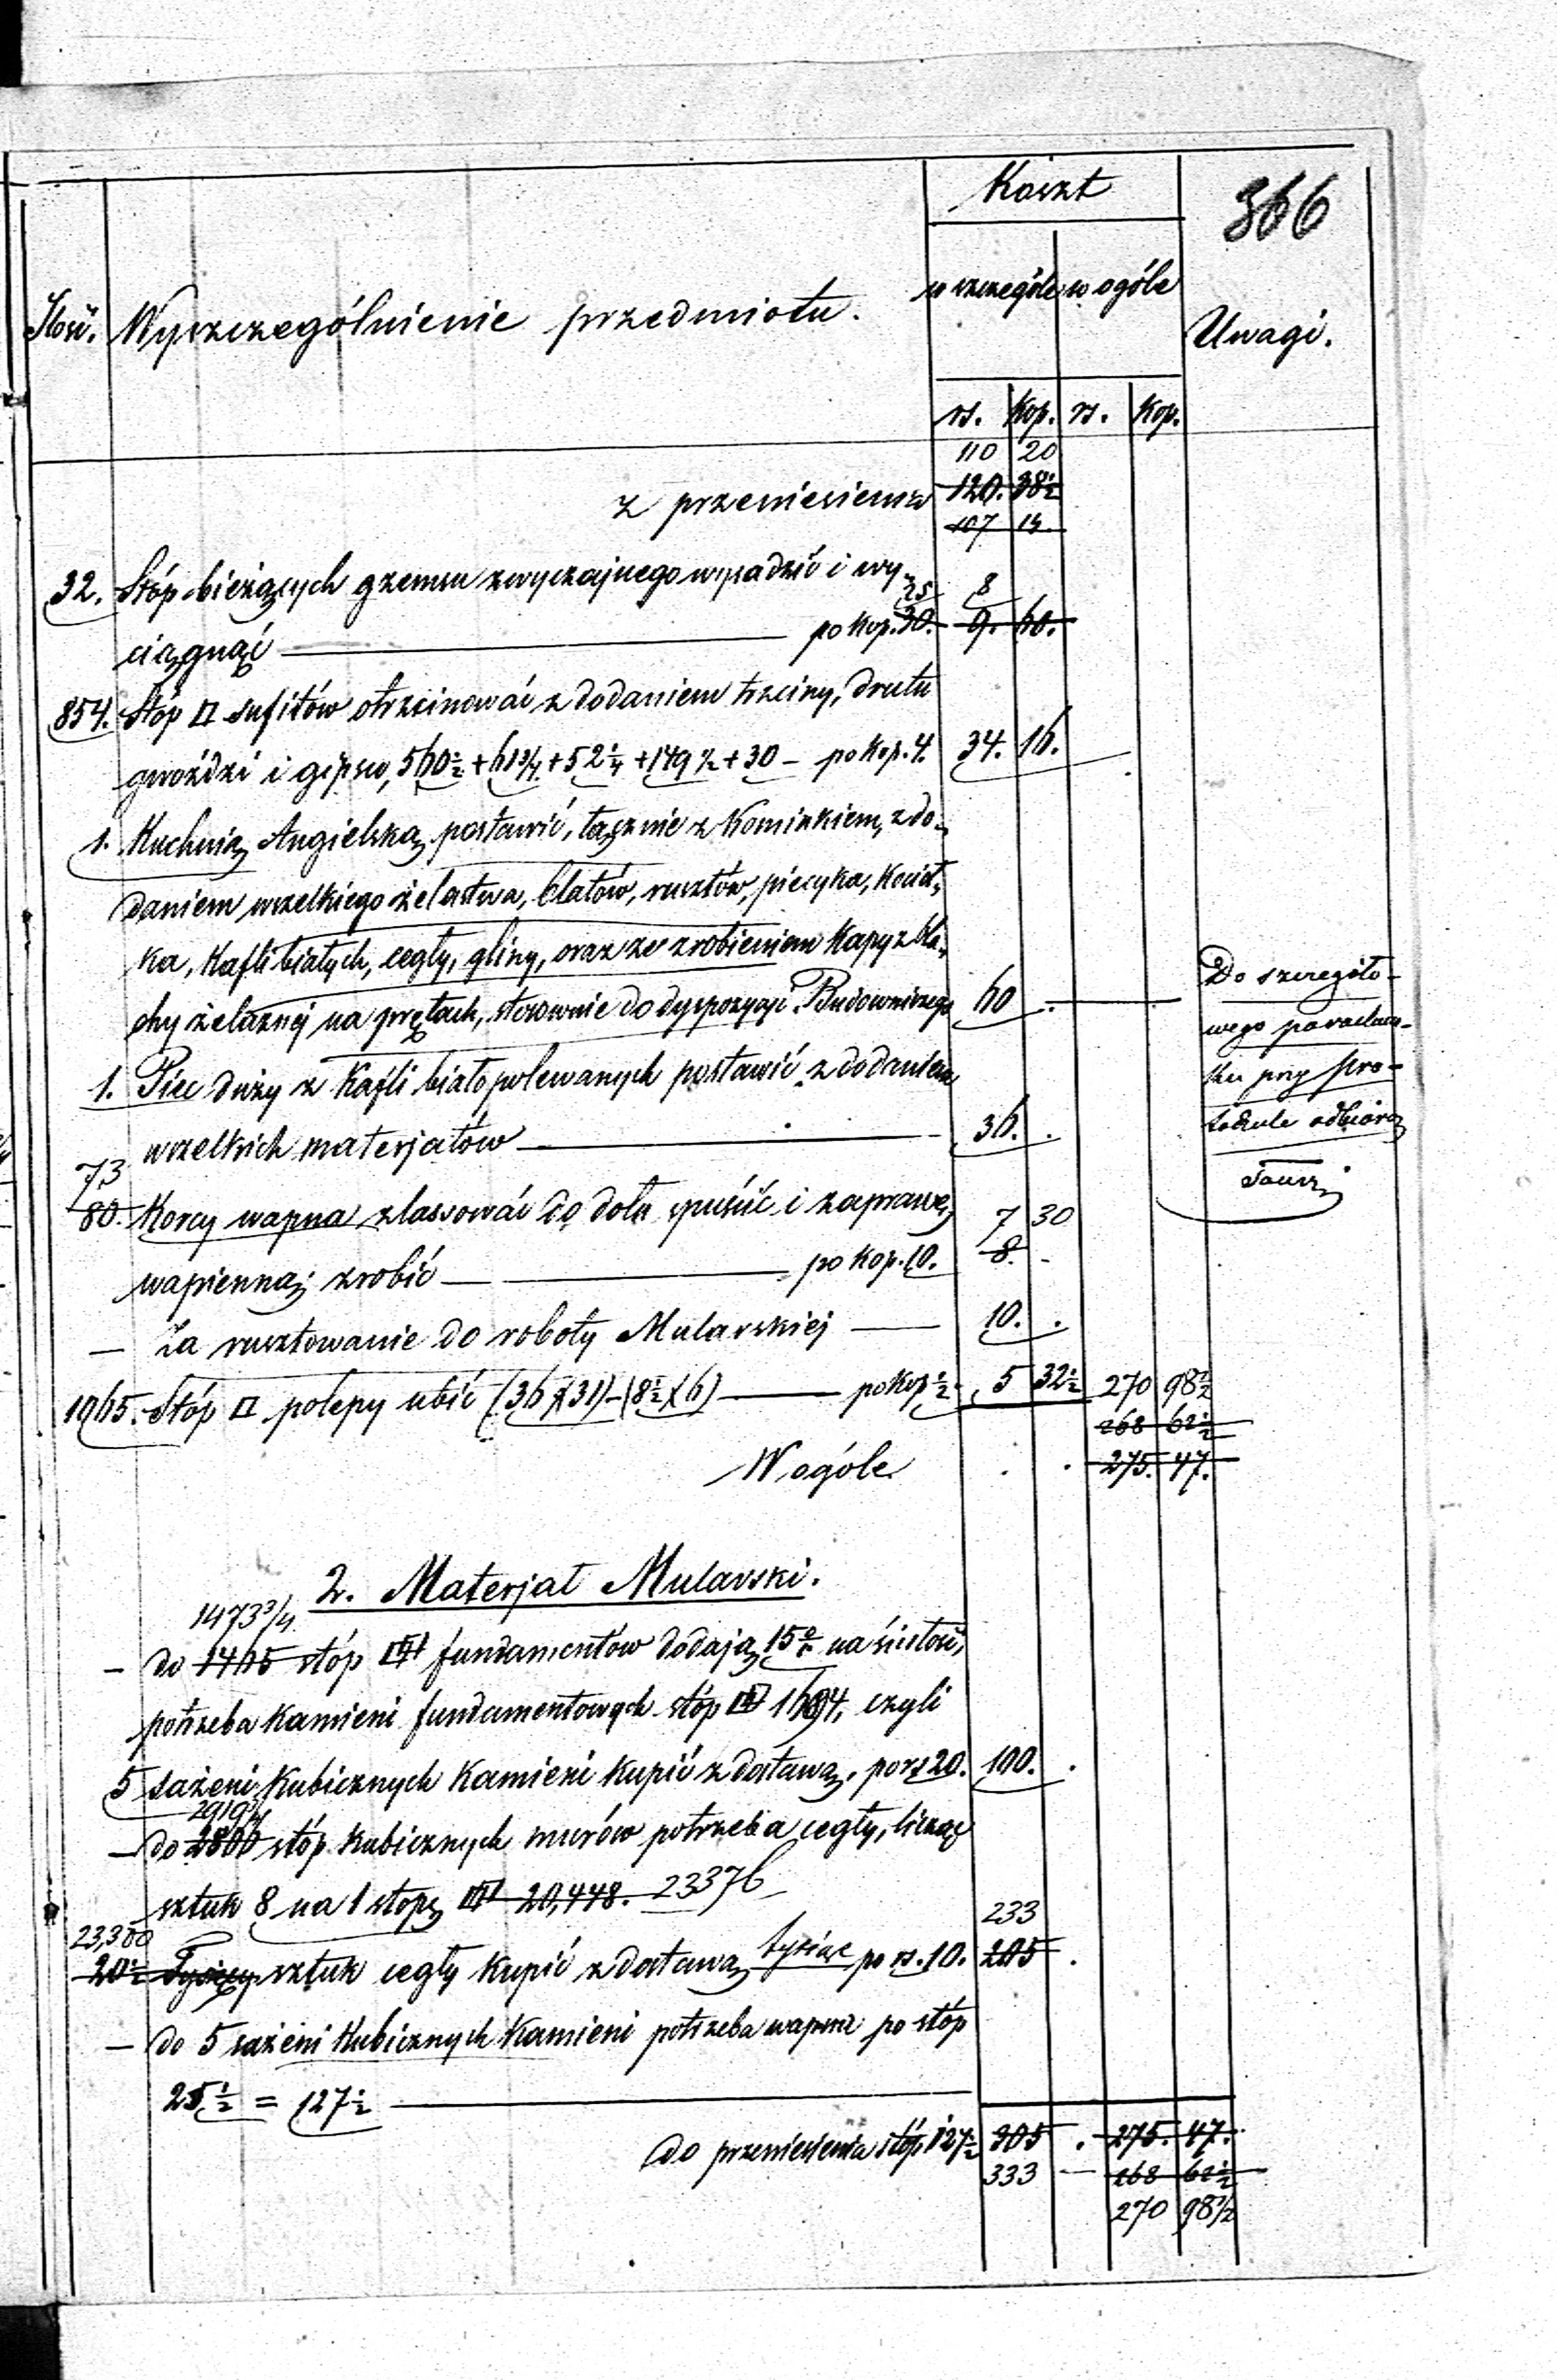 Koszt
366
w szczególe w ogóle
Ilość. Wyszczególnienie przedmiotu. Uwagi.
rs. Kop. rs. Kop.
110 20
z przeniesienia 120. 38½
107 14
32. Stóp bieżących gzemsu zwyczajnego wysadzić i wy-
25 8
ciągnąć — po kop. 30. 9. 60.
854. Stóp □ sufitów otrzcinować z dodaniem trzciny, drutu
gwoździ i gipsu, 560½ + 61¾ + 52¼ + 149½ + 30 — po kop. 4. 34. 16.
1. Kuchnią Angielską postawić, łącznie z Kominkiem, z do-
daniem wszelkiego żelastwa, blatów, rusztów, piecyka, kociół-
ka, Kafli białych, cegły, gliny, oraz ze zrobieniem Kapy z bla-
chy żelaznej na prętach, stosownie do dyspozycyi Budowniczego 60 .
Do szczegóło-
wego
przy pro-
tokule odbioru
1. Piec duży z Kafli biało polewanych postawić z dodaniem
wszelkich materjałów — 36. .
73
80. Korcy wapna zlassować do dołu spuścić i zaprawę 7 30
wapienną zrobić — po kop. 10. 8. -
— Za rusztowanie do roboty Mularskiej — 10. .
1065. Stóp □ polepy ubić (36 × 31) - (8½ × 6) — po kop ½. 5 32½ 270 98½
268 62½
W ogóle . . 275. 47.
2. Materjał Mularski.
1473¾
— do 1465 stóp fundamentów dodają 15% na ścisłość,
potrzeba kamieni fundamentowych stóp 1694, czyli
5 sażeni Kubicznych Kamieni kupić z dostawą, po rs 20. 100. .
— do 2800 stóp Kubicznych murów potrzeba cegły, licząc
sztuk 8 na 1 stopę 20,448. 23376
23,300 233
20½ Tysięcy sztuk cegły kupić z dostawą tysiąc po rs. 10. 205 .
— do 5 sażeni Kubicznych Kamieni potrzeba wapna po stóp
25½ = 127½ —
do przeniesienia stóp 127½ 305 . 275. 47.
333 — 268 62½
270 98½